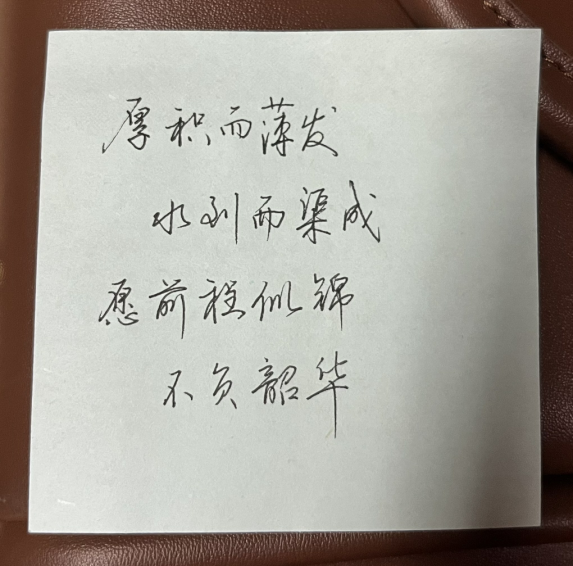 厚积而薄发
水到而渠成
愿前程似锦
不负韶华